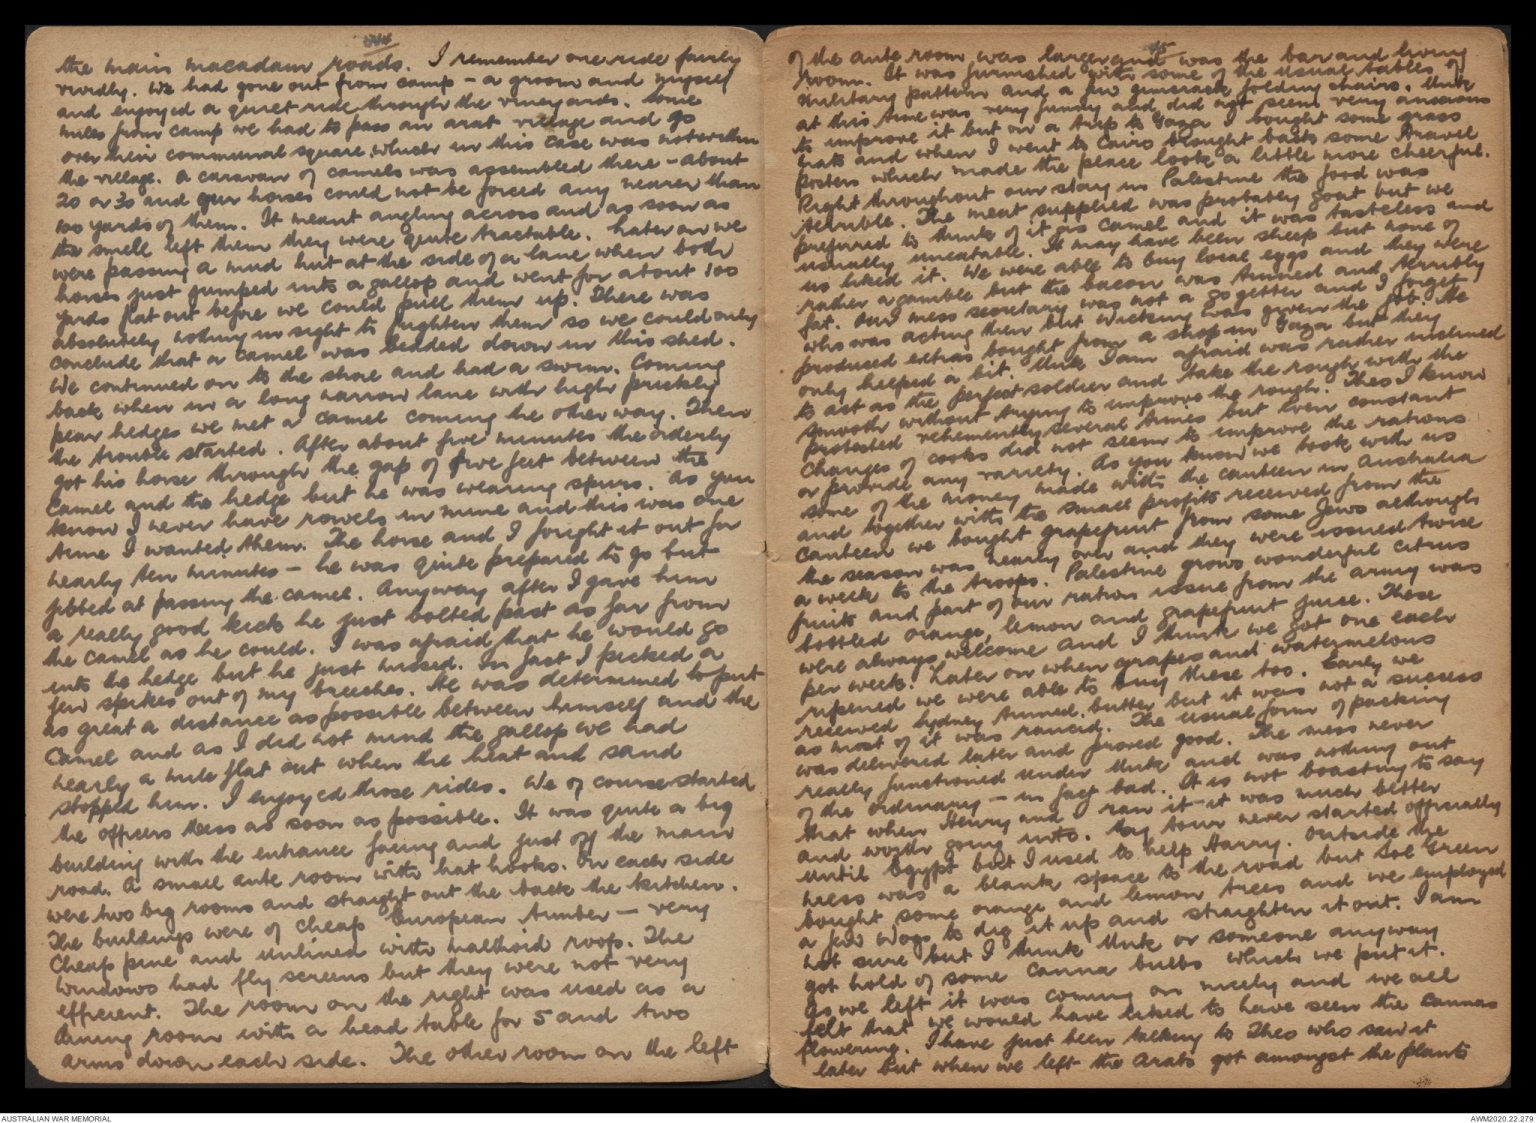 44
the main macadam roads. I remember one ride fairly
vividly. We had gone out from camp - a groom and myself
and enjoyed a quiet ride through the vineyards. Some
miles from camp we had to pass an arab village and go
over their communal square, which in this case was not within
the village. A caravan of camels was assembled there - about
20 or 30 and our horses could not be forced any nearer than
100 yards of them. It meant angling across and as soon as
the smell left them they were quite tractable. Later on we
were passing a mud hut at the side of a lane when both
horses just jumped into a gallop and went for about 100
yards flat out before we could pull them up. There was
absolutely nothing in sight to frighten them so we could only
conclude that a camel was bedded down in this shed.
We continued on to the shore and had a swim. Coming
back when in a long narrow lane with high prickly
pear hedges we met a camel coming the other way. Then
the trouble started. After about five minutes the orderly
got his horse through the gap of five feet between the
camel and the hedge but he was wearing spurs. As you
know I never have rowels in mine and this was one
time I wanted them. The horse and I fought it out for
nearly ten minutes - he was quite prepared to go but
jibbed at passing the camel. Anyway after I gave him
a really good kick he just bolted past as far from
the camel as he could. I was afraid that he would go
into the hedge but he just missed. In fact I picked a
few spikes out of my breeches. He was determined to put
as great a distance as possible between himself and the
camel and as I did not mind the gallop we had
nearly a mile flat out when the heat and sand
stopped him. I enjoyed those rides. We of course started
the officers mess as soon as possible. It was quite a big
building with the entrance facing and just off the main
road. A small ante room with hat hooks. On each side
were two big rooms and straight out the back the kitchen.
The buildings were of cheap European timber - very
cheap pine and unlined with malthoid roofs. The
windows had fly screens but they were not very
efficient. The room on the right was used as a
dining room with a head table for 5 and two
arms down each side. The other room on the left
45
of the ante room was larger and was the bar and living
room. It was furnished with some of the usual tables of
military pattern and a few gimcrack folding chairs. Unk
at this time was very funny and did not seem very anxious
to improve it but on a trip to Gaza I bought some grass
mats and when I went to Cairo brought back some travel
posters which made the place look a little more cheerful.
Right throughout our stay in Palestine the food was
terrible. The meat supplied was probably goat but we
preferred to think of it as camel and it was tasteless and
usually uneatable. It may have been sheep but none of
us liked it. We were able to buy local eggs and they were
rather a gamble but the bacon was tinned and terribly
fat. Our mess secretary was not a go getter and I forget
who was acting then but Wicking was given the job. He
produced extras bought from a shop in Gaza but they
only helped a bit. Unk I am afraid was rather inclined
to act as the perfect soldier and take the rough with the
smooth without trying to improve the rough. Theo I know
protested vehemently several times but even constant
changes of cooks did not seem to improve the rations
or provide any variety. As you know we took with us
some of the money made with the canteen in Australia
and together with the small profits received from the
canteen we bought grapefruit from some Jews although
the season was nearly over and they were issued twice
a week to the troops. Palestine grows wonderful citrus
fruits and part of our ration issue from the army was
bottled orange, lemon and grapefruit juice. These
were always welcome and I think we got one each
per week. Later on when grapes and watermelons
ripened we were able to buy these too. Early we
received Sydney tinned butter but it was not a success
as most of it was rancid. The usual form of packing
was delivered later and proved good. The mess never
really functioned under Unk and was nothing out
of the ordinary - in fact bad. It is not boasting to say
that when Henry and I ran it - it was much better
and worth going into. My tour never started officially
until Egypt but I used to help Harry. Outside the
mess was a blank space to the road but Sol Green
bought some orange and lemon trees and we employed
a few Wogs to dig it up and straighten it out. I am
not sure but I think Unk or someone anyway
got hold of some canna bulbs which we put it.
As we left it was coming on nicely and we all
felt that we would have liked to have seen the cannas
flowering. I have just been talking to Theo who saw it
later but when we left the Arabs got amongst the plants
AUSTRALIAN WAR MEMORIAL
AWM2020.22.279